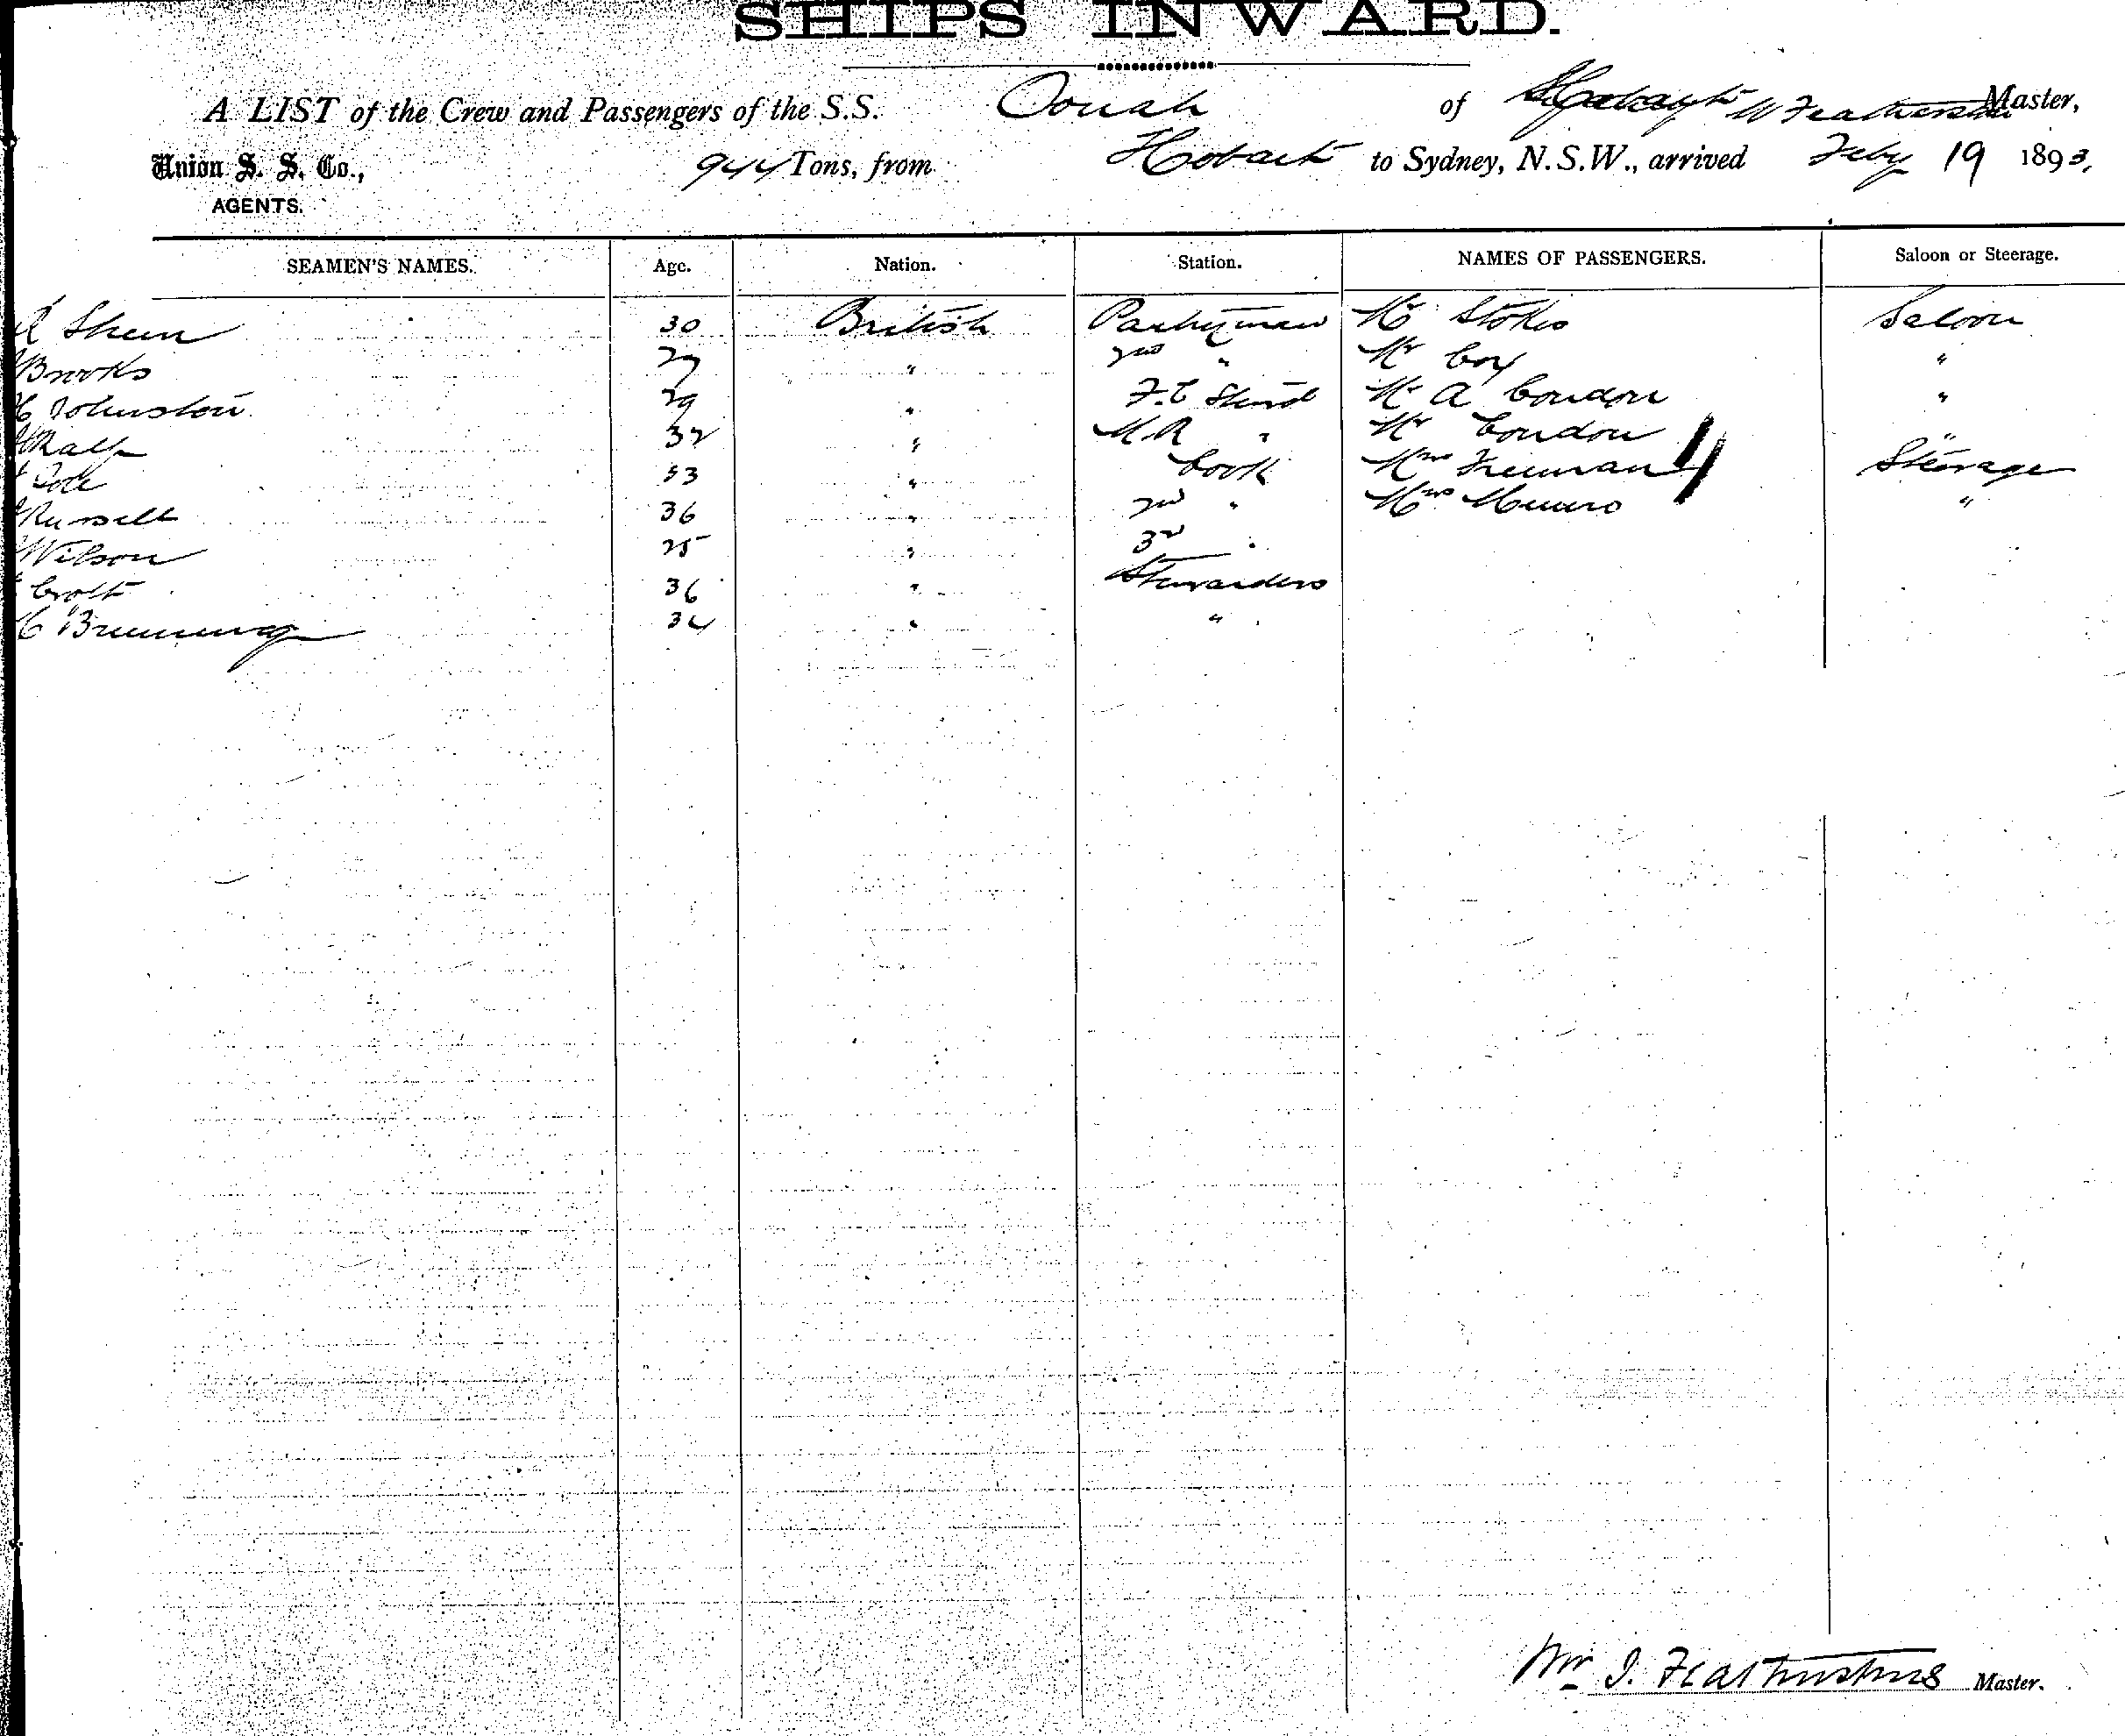 SHIPS INWARD.
A LIST of the Crew and Passengers of the S.S. Oonah of W Featherstone Master,
Union S. S. Co., 944 Tons, from Hobart to Sydney, N.S.W., arrived Feby 19 1893,
AGENTS.
SEAMEN'S NAMES. Age. Nation. Station. NAMES OF PASSENGERS. Saloon or Steerage.
30 British Pantryman Mr Stokes Saloon
Brooks 27 " 2nd " Mr Cox "
Johnston 29 " F.C. Stwd Mr A Condon "
32 " " Mr Condon "
53 " Cook Mrs Freeman Steerage
Russell 36 " 2nd " Mrs Munro "
Wilson 25 " 3rd "
Croft 36 " Stewardess
34 " "
4
Wm J. Featherstone Master.